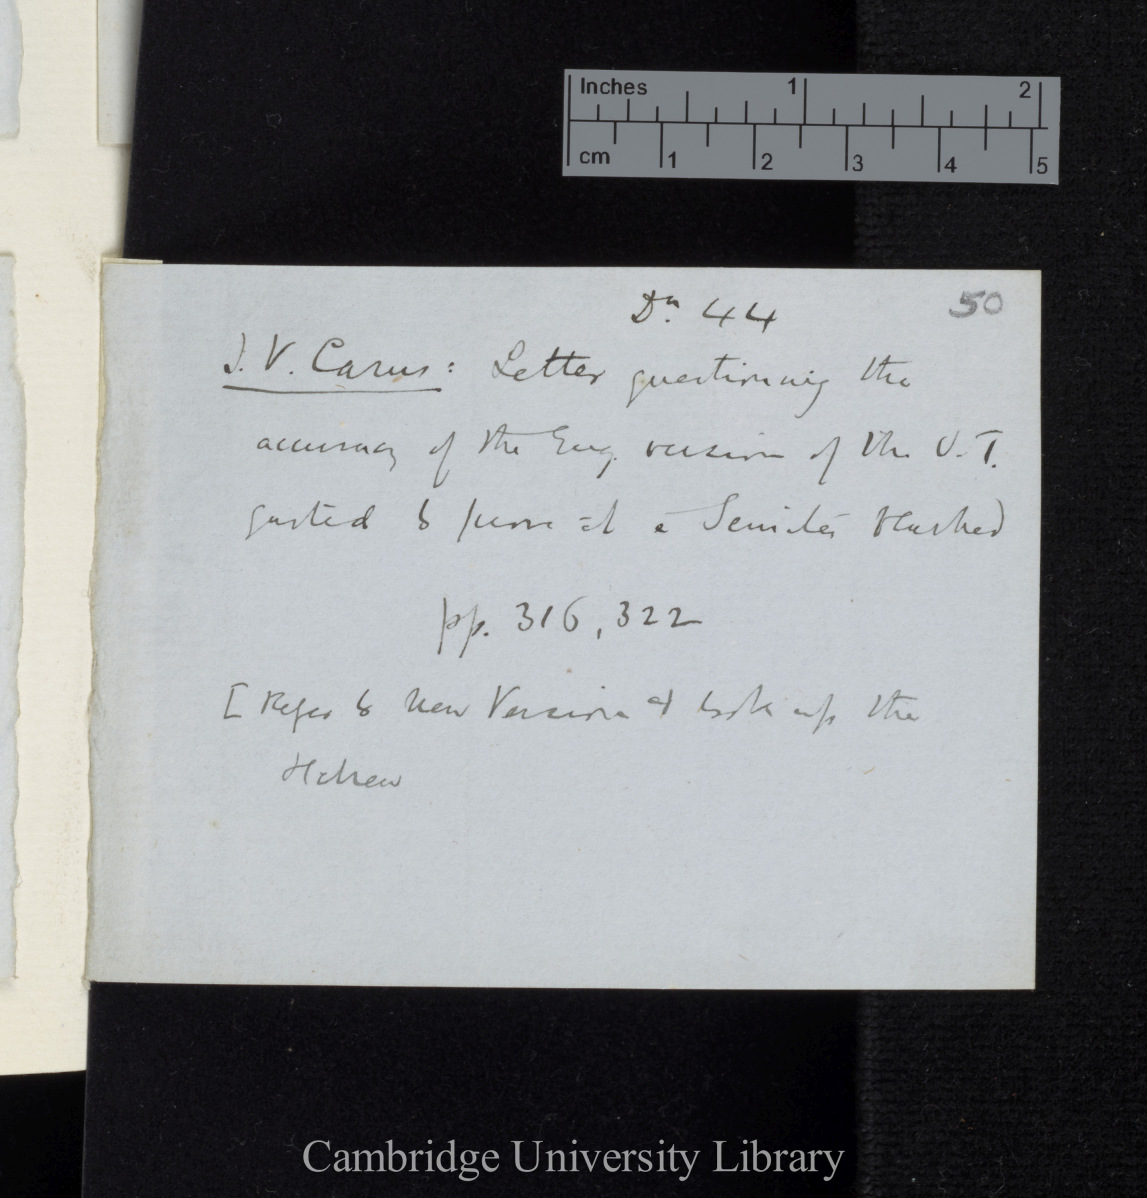 Inches 1 2
cm 1 2 3 4 5
Dn. 44
50
J. V. Carus: Letter questioning the
accuracy of the Eng. version of the O. T.
quoted to prove that the Semites blushed
pp. 316, 322
[Refer to New Version & look up the
Hebrew
Cambridge University Library